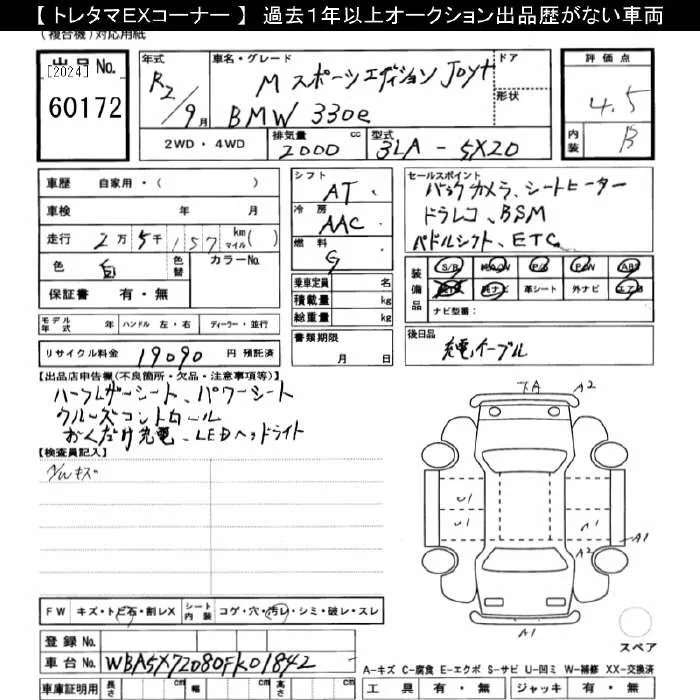 【 トレタマEXコーナー 】 過去1年以上オークション出品歴がない車両
(複合機)対応用紙
出品 No.
[2024]
60172
年式
R2/9月
車名・グレード
M スポーツエディション Joy+
BMW 330e
ドア
形状
評価点
4.5
内装
B
2WD・4WD
排気量
2000 cc
型式
3LA - 5X20
車歴 自家用・( )
車検 年 月
走行 2万5千157 km マイル( )
色 白 色替 カラーNo.
保証書 有・無
シフト
AT
冷房
AAC
燃料
G
乗車定員 名
積載量 kg
総重量 kg
セールスポイント
バックカメラ、シートヒーター
ドラレコ、BSM
パドルシフト、ETC
装備品
S/R 純AW P/S P/W ABS
純TV 純ナビ 革シート 外ナビ エアB
ナビ型番:
モデル年式 年 ハンドル 左・右 ディーラー・並行
リサイクル料金 19090 円 預託済
書類期限
月 日
後日品
充電ケーブル
【出品店申告欄(不良箇所・欠品・注意事項等)】
ハーフレザーシート、パワーシート
クルーズコントロール
おくだけ充電、LEDヘッドライト
【検査員記入】
キズ
A2
U1 U1
U1 A1
A1
A2
A1
スペア
FW キズ・トビ石・割レX シート内装 コゲ・穴・汚レ・シミ・破レ・スレ
登録 No.
車台 No. WBA5X72080FK01842
A-キズ C-腐食 E-エクボ S-サビ U-凹ミ W-補修 XX-交換済
車庫証明用 長さ cm 幅 cm 高さ cm
工具 有・無 ジャッキ 有・無